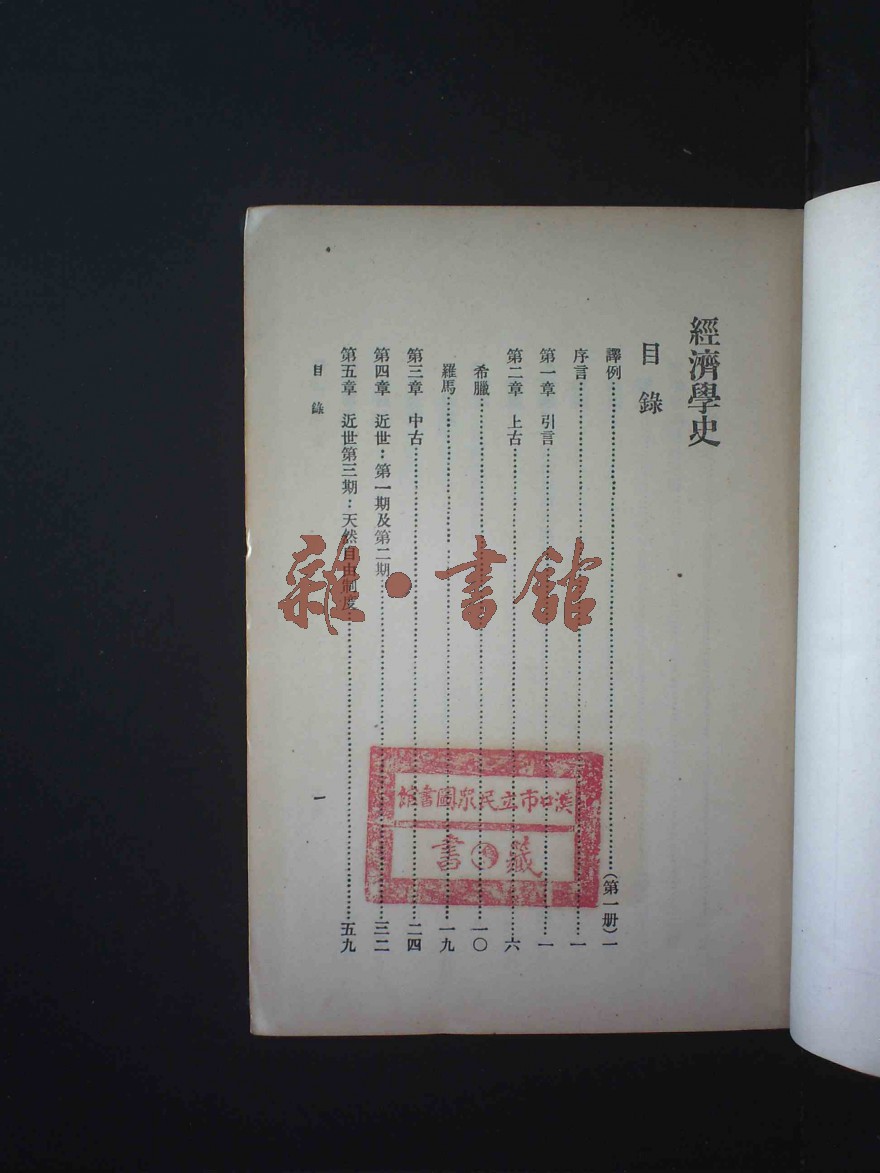 經濟學史
目錄
譯例……(第一册)一
序言……一
第一章 引言……一
第二章 上古……六
希臘……一〇
羅馬……一九
第三章 中古……二四
第四章 近世:第一期及第二期……三二
第五章 近世第三期:天然自由制度……五九
目錄
一
雜·書館
漢口市立民眾圖書館
藏書